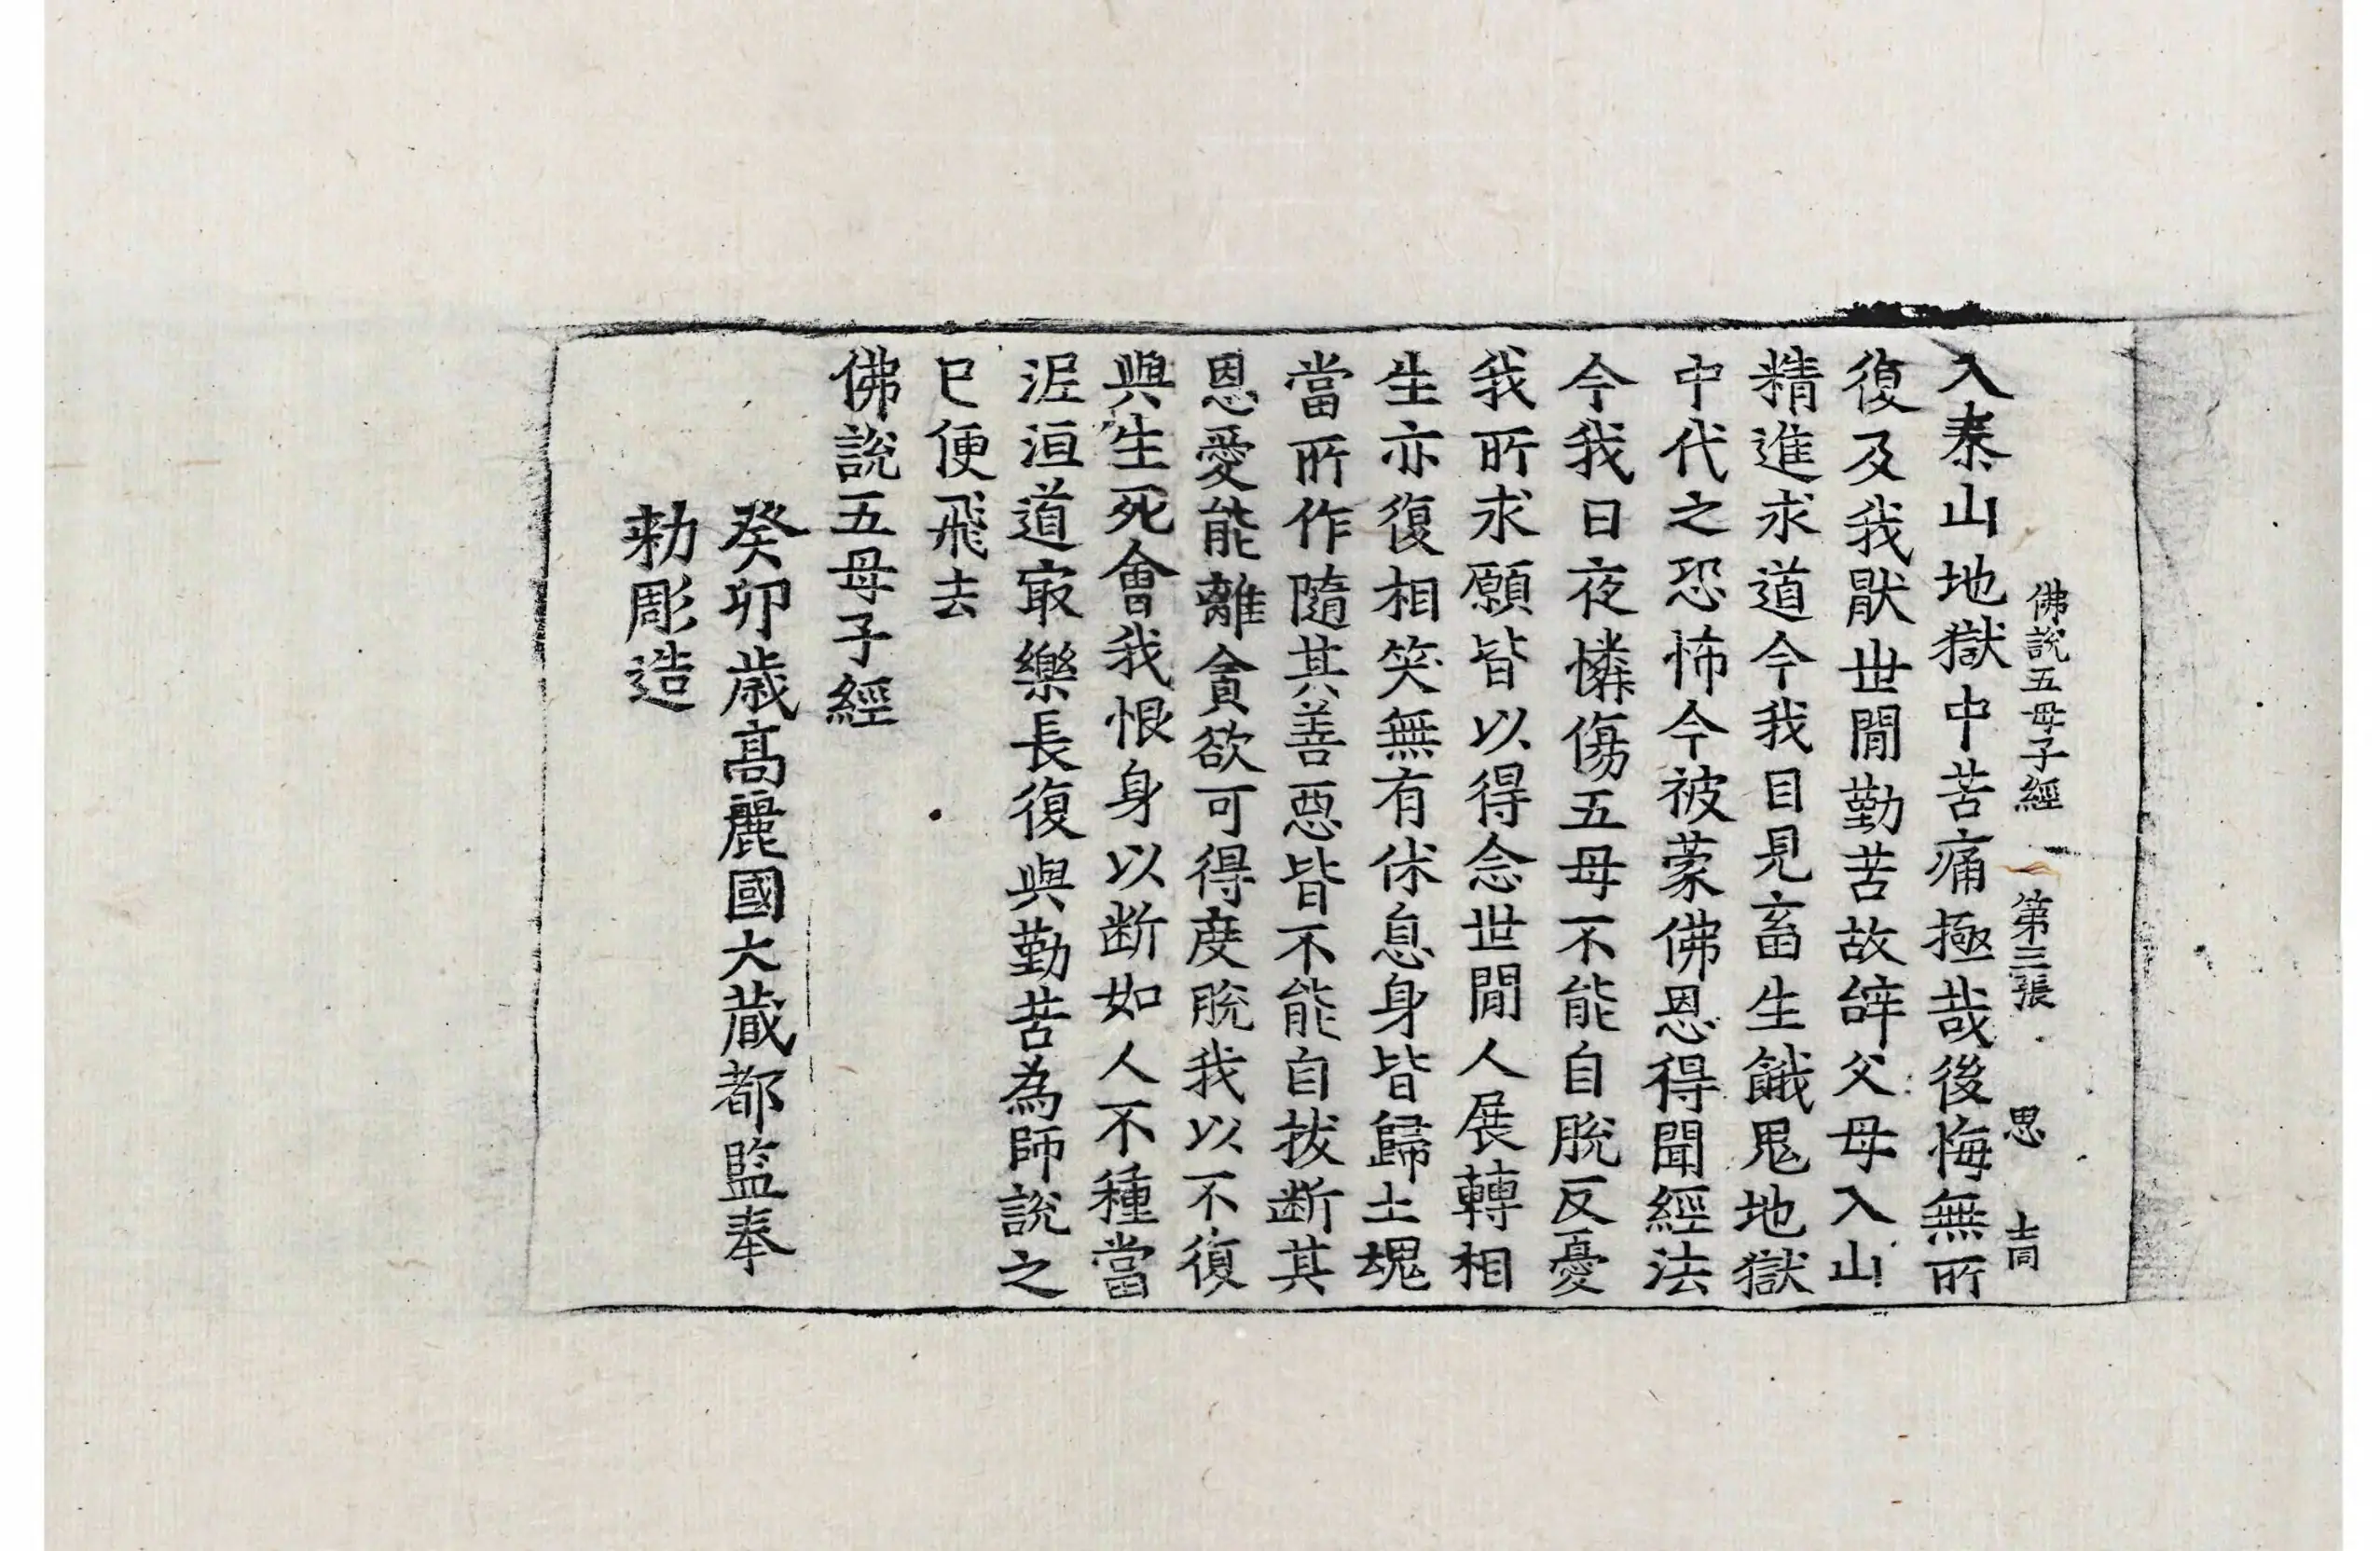 佛說五母子經 第三張 思 吉同
入泰山地獄中苦痛極哉後悔無所
復及我猒世閒勤苦故辝父母入山
精進求道今我目見畜生餓鬼地獄
中代之恐怖今被蒙佛恩得聞經法
今我日夜憐傷五母不能自脫反憂
我所求願皆以得念世閒人展轉相
生亦復相笑無有休息身皆歸土塊
當所作隨其善惡皆不能自拔斷其
恩愛能離貪欲可得度脫我以不復
與生死會我恨身以斷如人不種當
泥洹道冣樂長復與勤苦為師說之
已便飛去
佛說五母子經
癸卯歲高麗國大藏都監奉
勅彫造